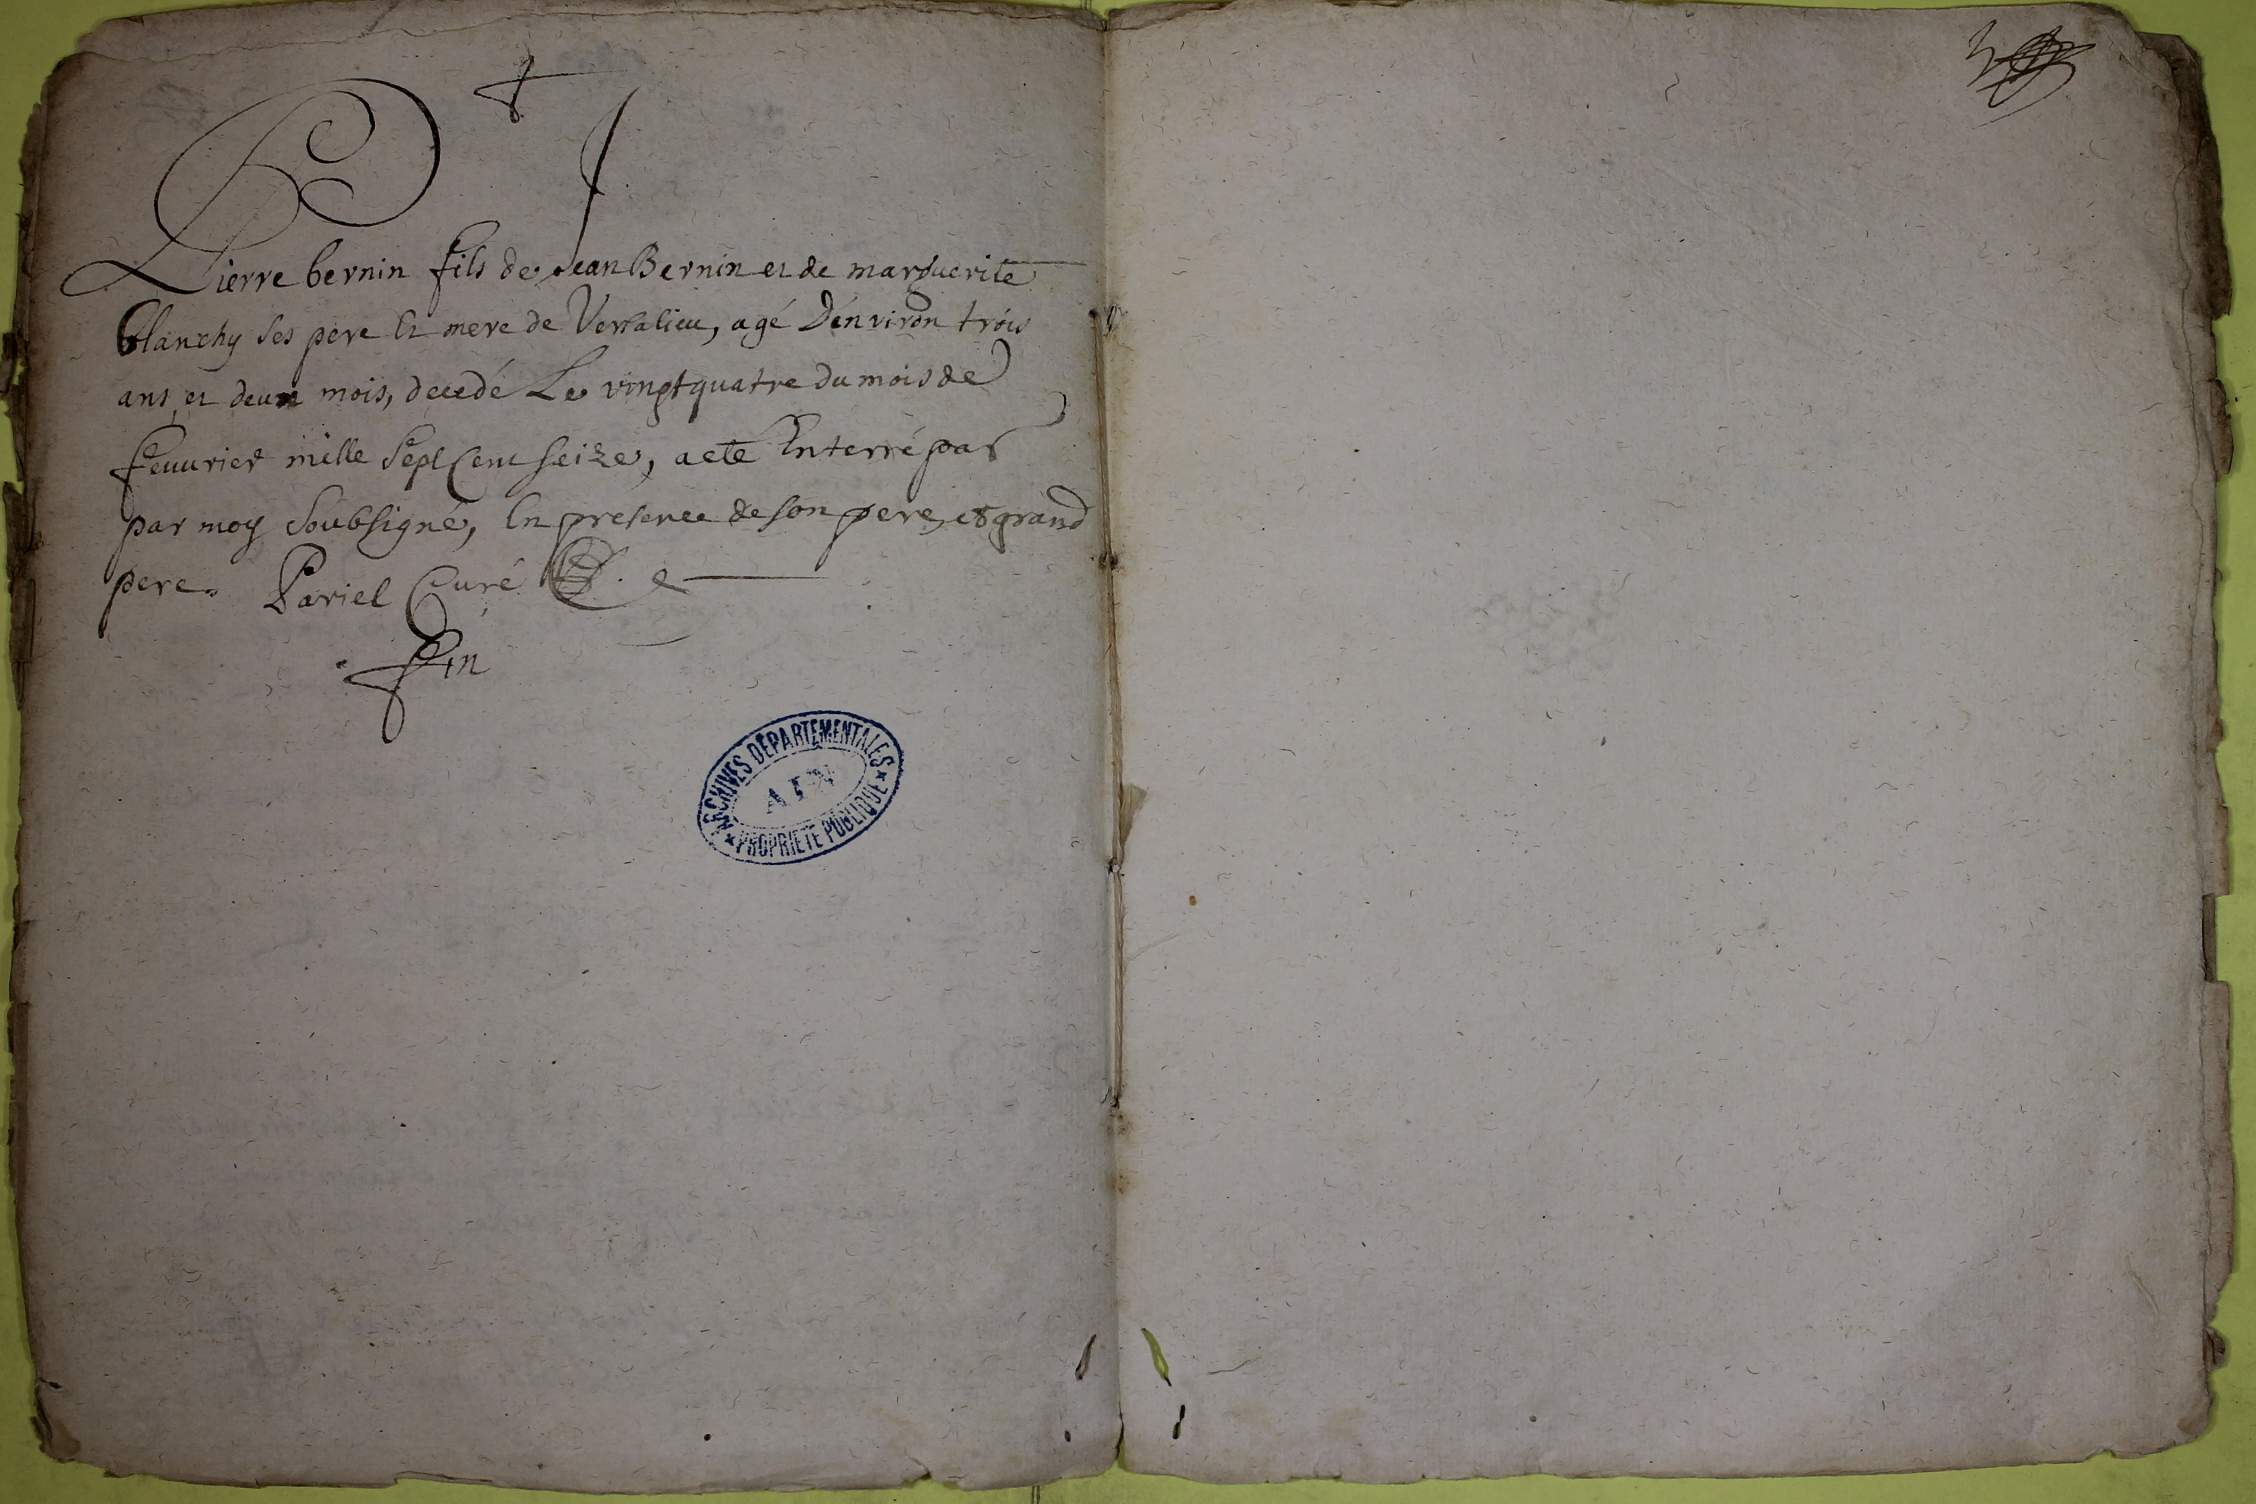 Pierre bernin fils de Jean Bernin et de marguerite
blanchy ses pere Et mere de Versalieu, agé D'environ trois
ans, et deux mois, decedé Le vingtquatre du mois de
feuurier mille Sept Cent seize, a eté Enterré par
par moy Soubsigné, En presence de son pere, et grand
pere. Pariel Curé
fin
ARCHIVES DÉPARTEMENTALES
AIN
PROPRIETE PUBLIQUE